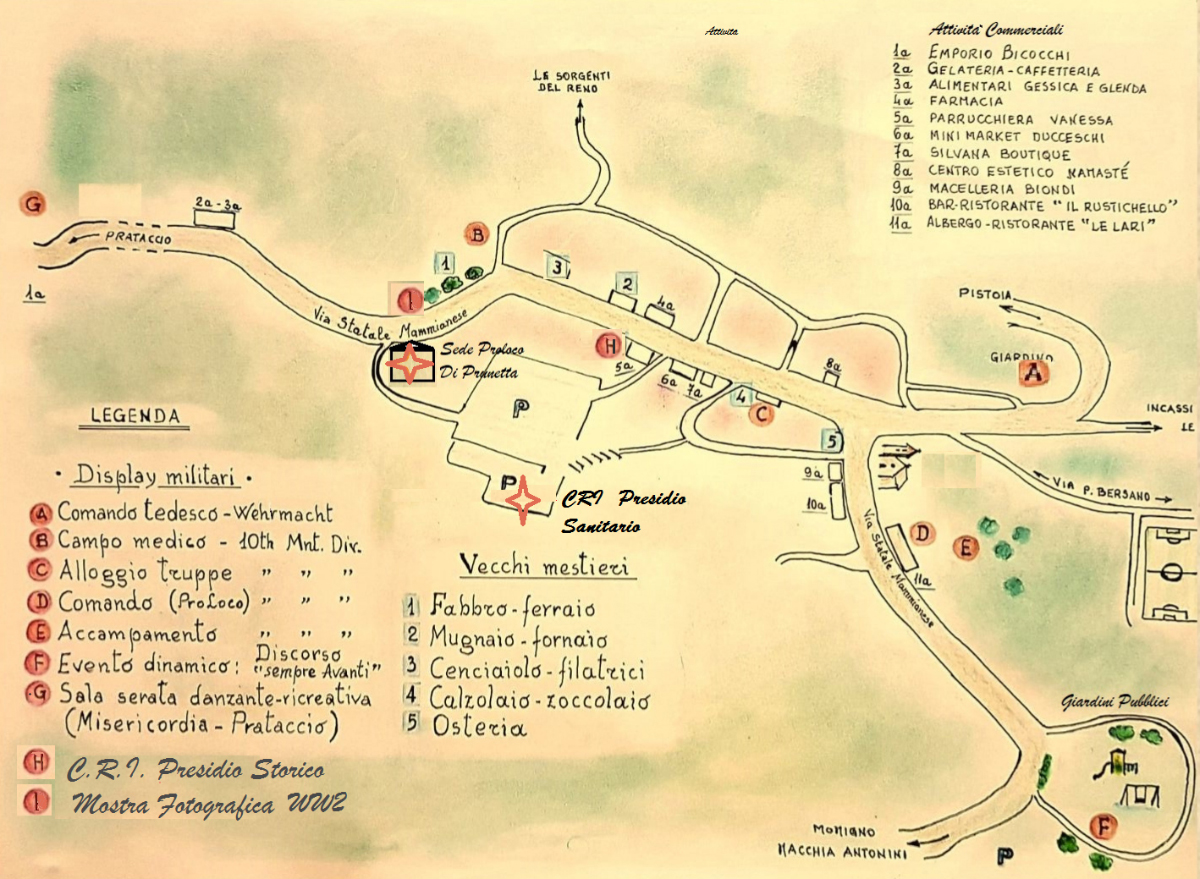 Attivita
Attività Commerciali
1a EMPORIO BICOCCHI
2a GELATERIA-CAFFETTERIA
3a ALIMENTARI GESSICA E GLENDA
4a FARMACIA
5a PARRUCCHIERA VANESSA
6a MINI MARKET DUCCESCHI
7a SILVANA BOUTIQUE
8a CENTRO ESTETICO NAMASTÉ
9a MACELLERIA BIONDI
10a BAR-RISTORANTE "IL RUSTICHELLO"
11a ALBERGO-RISTORANTE "LE LARI"
LE SORGENTI
DEL RENO
G
2a-3a
PRATACCIO
1a
B
1
3
2
4a
I
Via Statale Mammianese
H
5a
6a
7a
8a
4
C
5
PISTOIA
GIARDINO
A
INCASSI
LE
Sede Proloco
Di Prunetta
P
P
CRI Presidio
Sanitario
9a
10a
VIA P. BERSANO
Via Statale Mammianese
D
E
11a
Giardini Pubblici
F
MOMIGNO
MACCHIA ANTONINI
P
LEGENDA
• Display militari •
A Comando tedesco-Wehrmacht
B Campo medico - 10th Mnt. Div.
C Alloggio truppe " " "
D Comando (ProLoco) " " "
E Accampamento " " "
F Evento dinamico: Discorso
"sempre Avanti"
G Sala serata danzante-ricreativa
(Misericordia - Prataccio)
H C.R.I. Presidio Storico
I Mostra Fotografica WW2
Vecchi mestieri
1 Fabbro-ferraio
2 Mugnaio-fornaio
3 Cenciaiolo-filatrici
4 Calzolaio-zoccolaio
5 Osteria